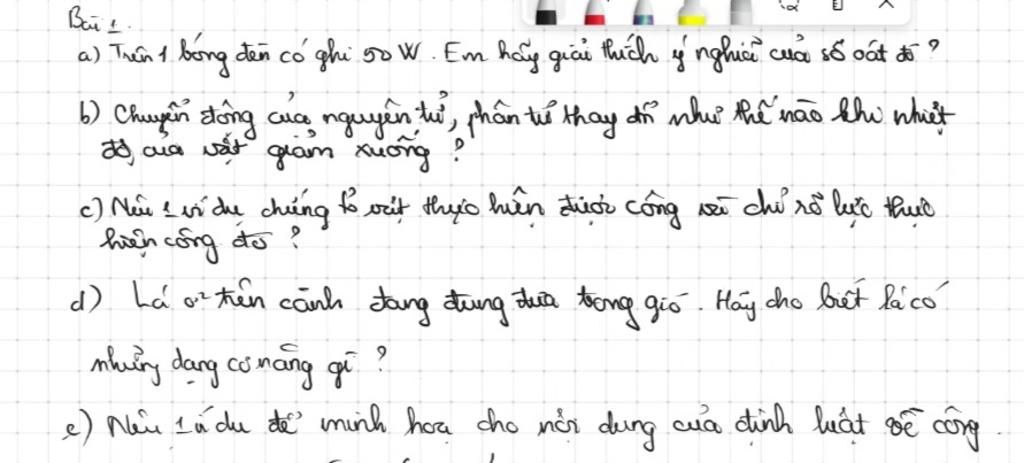 Bài 1.
a) Trên 1 bóng đèn có ghi 50 W. Em hãy giải thích ý nghĩa của số oát đó ?
b) Chuyển động của nguyên tử, phân tử thay đổi như thế nào khi nhiệt
độ của vật giảm xuống ?
c) Nêu 1 ví dụ chứng tỏ vật thực hiện được công và chỉ rõ lực thực
hiện công đó ?
d) Lá ở trên cành đang đung đưa trong gió. Hãy cho biết lá có
những dạng cơ năng gì ?
e) Nêu 1 ví dụ để minh hoạ cho nội dung của định luật về công.